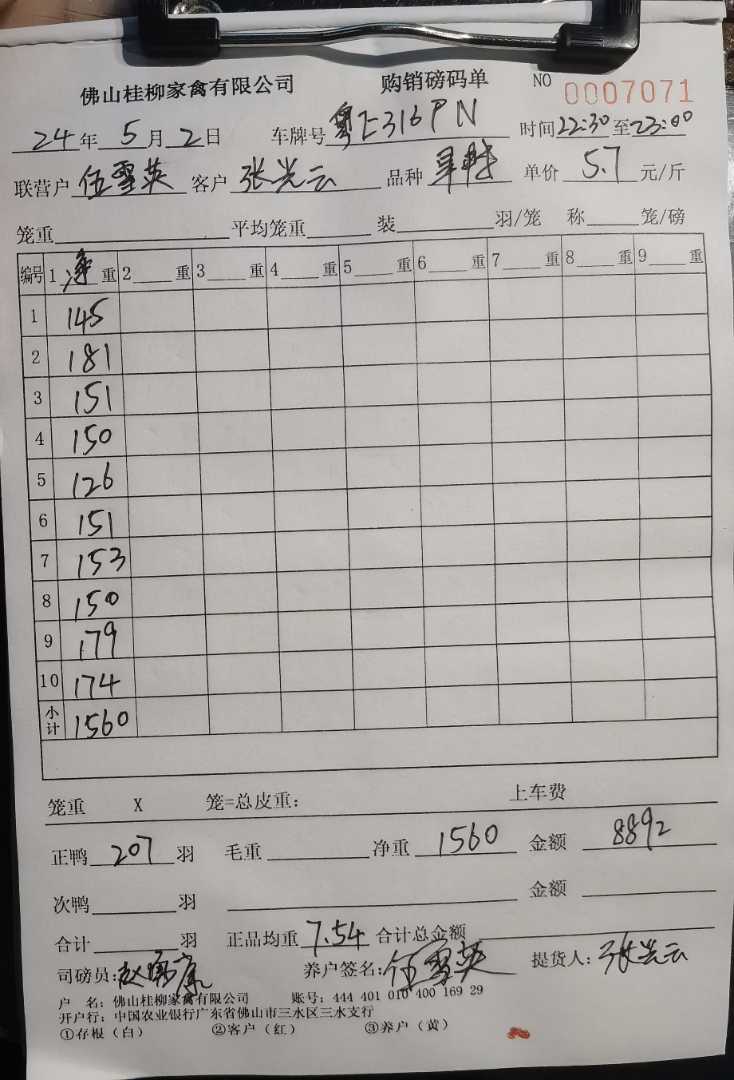 佛山桂柳家禽有限公司 购销磅码单 NO 0007071
24年 5月 2日 车牌号 粤E316PN 时间22:30至23:00
联营户 伍雪英 客户 张光云 品种 单价 5.7 元/斤
笼重 平均笼重 装 羽/笼 称 笼/磅
编号 1 净 重 2 重 3 重 4 重 5 重 6 重 7 重 8 重 9 重
1 145
2 181
3 151
4 150
5 126
6 151
7 153
8 150
9 179
10 174
小计 1560
笼重 X 笼=总皮重： 上车费
正鸭 207 羽 毛重 净重 1560 金额 8892
次鸭 羽 金额
合计 羽 正品均重 7.54 合计总金额
司磅员: 养户签名: 伍雪英 提货人: 张光云
户 名：佛山桂柳家禽有限公司 账号：444 401 010 400 169 29
开户行：中国农业银行广东省佛山市三水区三水支行
①存根（白） ②客户（红） ③养户（黄）